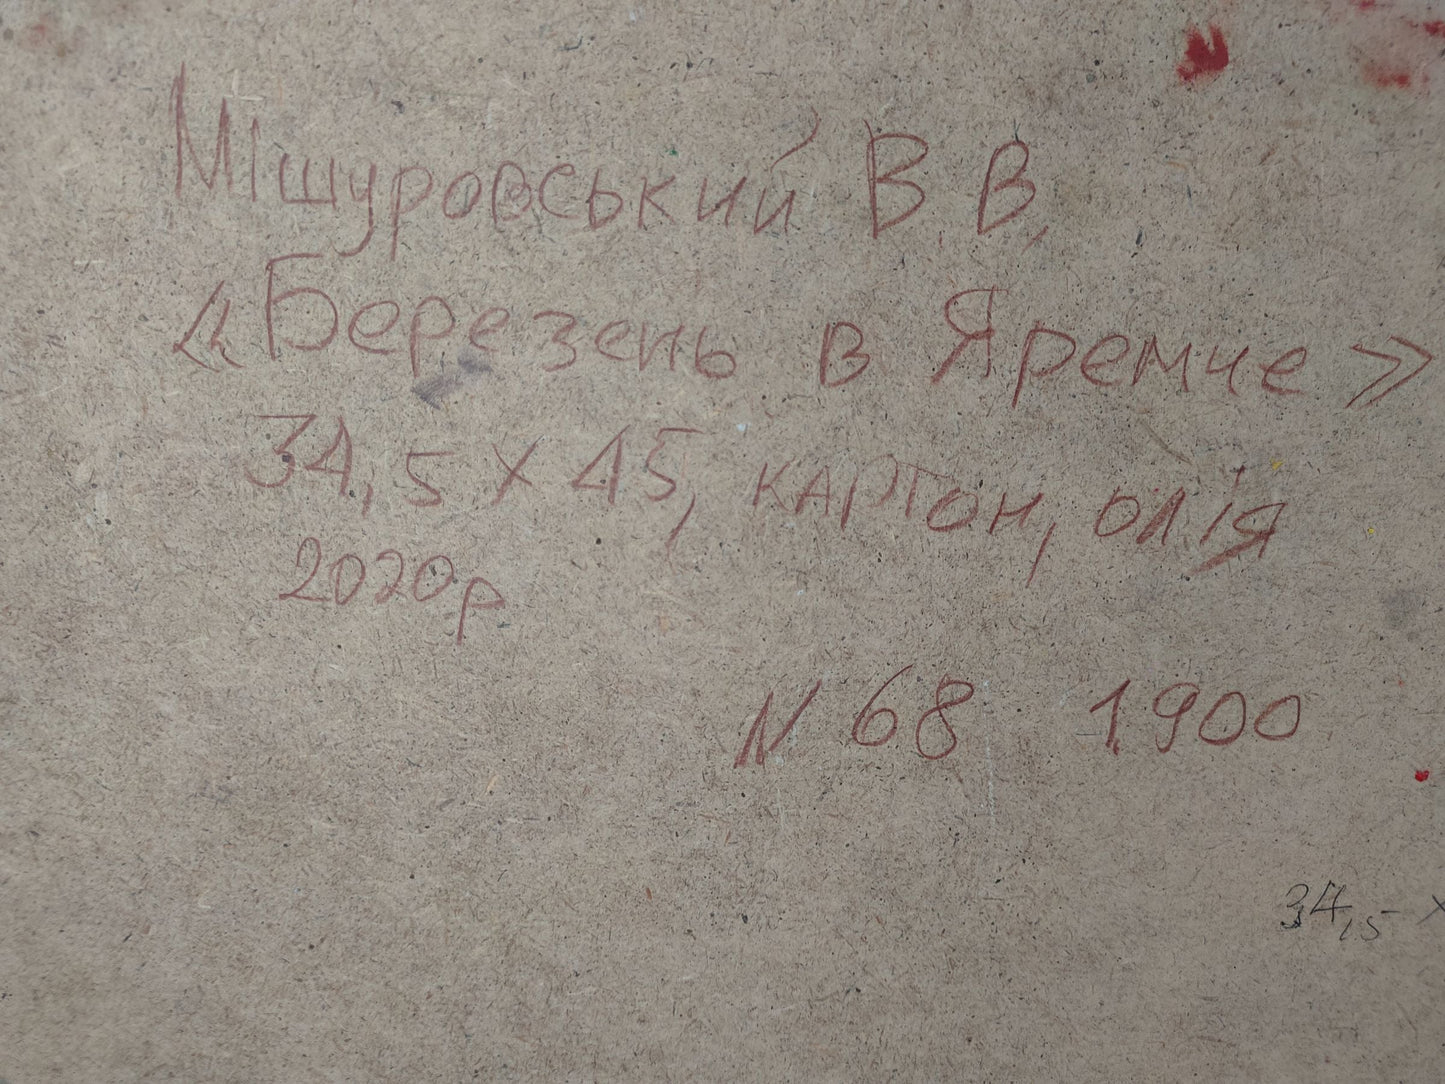 Мішуровський В. В.
«Березень в Яремче»
34,5 х 45, картон, олія
2020р
N 68 1900
34,5 х